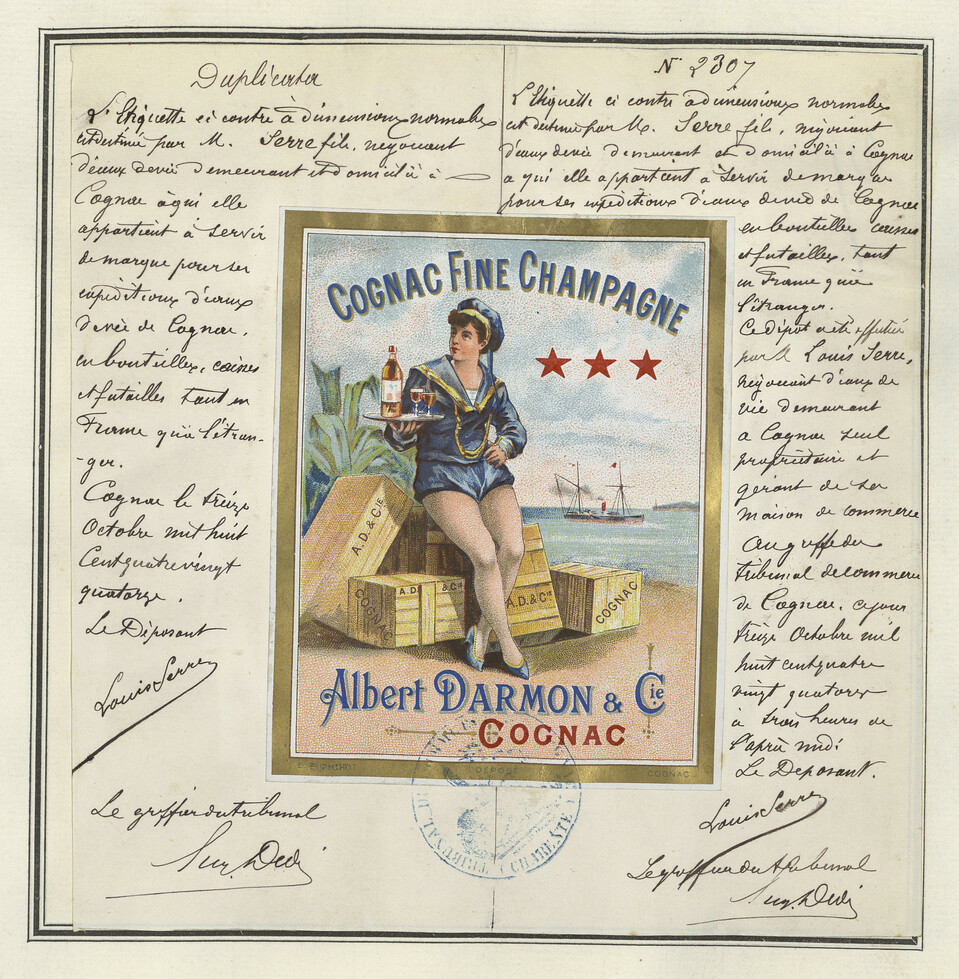 Duplicata
L'Etiquette ci contre à dimensions normales
est destinée par M. Serre fils, négociant
d'eaux devie demeurant et domicilié à
Cognac àqui elle
appartient à servir
de marque pour ses
expéditions d'eaux
devie de Cognac,
en bouteilles, caisses
et futailles tant en
France qu'à l'étran-
-ger.
Cognac le treize
Octobre mil huit
Cent quatre vingt
quatorze.
Le Déposant
Louis Serre
Le greffier du tribunal
N° 2307
L'Etiquette ci contre à dimensions normales
est destinée par M. Serre fils, négociant
d'eaux devie demeurant et domicilié à Cognac
a qui elle appartient à servir de marque
pour ses expéditions d'eaux devie de Cognac
en bouteilles caisses
et futailles, tant
en France qu'à
l'étranger.
Ce dépot a été effectué
par M Louis Serre,
négociant d'eaux de
vie demeurant
a Cognac seul
propriétaire et
gérant de sa
maison de commerce
au greffe du
tribunal de commerce
de Cognac, ce jour
treize Octobre mil
huit cent quatre
vingt quatorze
à trois heures de
l'après midi
Le Deposant.
Louis Serre
Le greffier du tribunal
COGNAC FINE CHAMPAGNE
A.D. & CIE
COGNAC
A.D. & CIE
A.D. & CIE
COGNAC
Albert DARMON & Cie
COGNAC
DÉPOSÉ
COGNAC
TRIBUNAL
CHARENTE